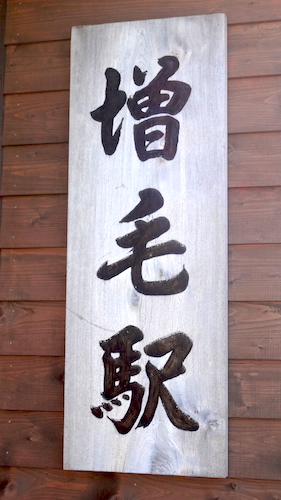 増毛駅